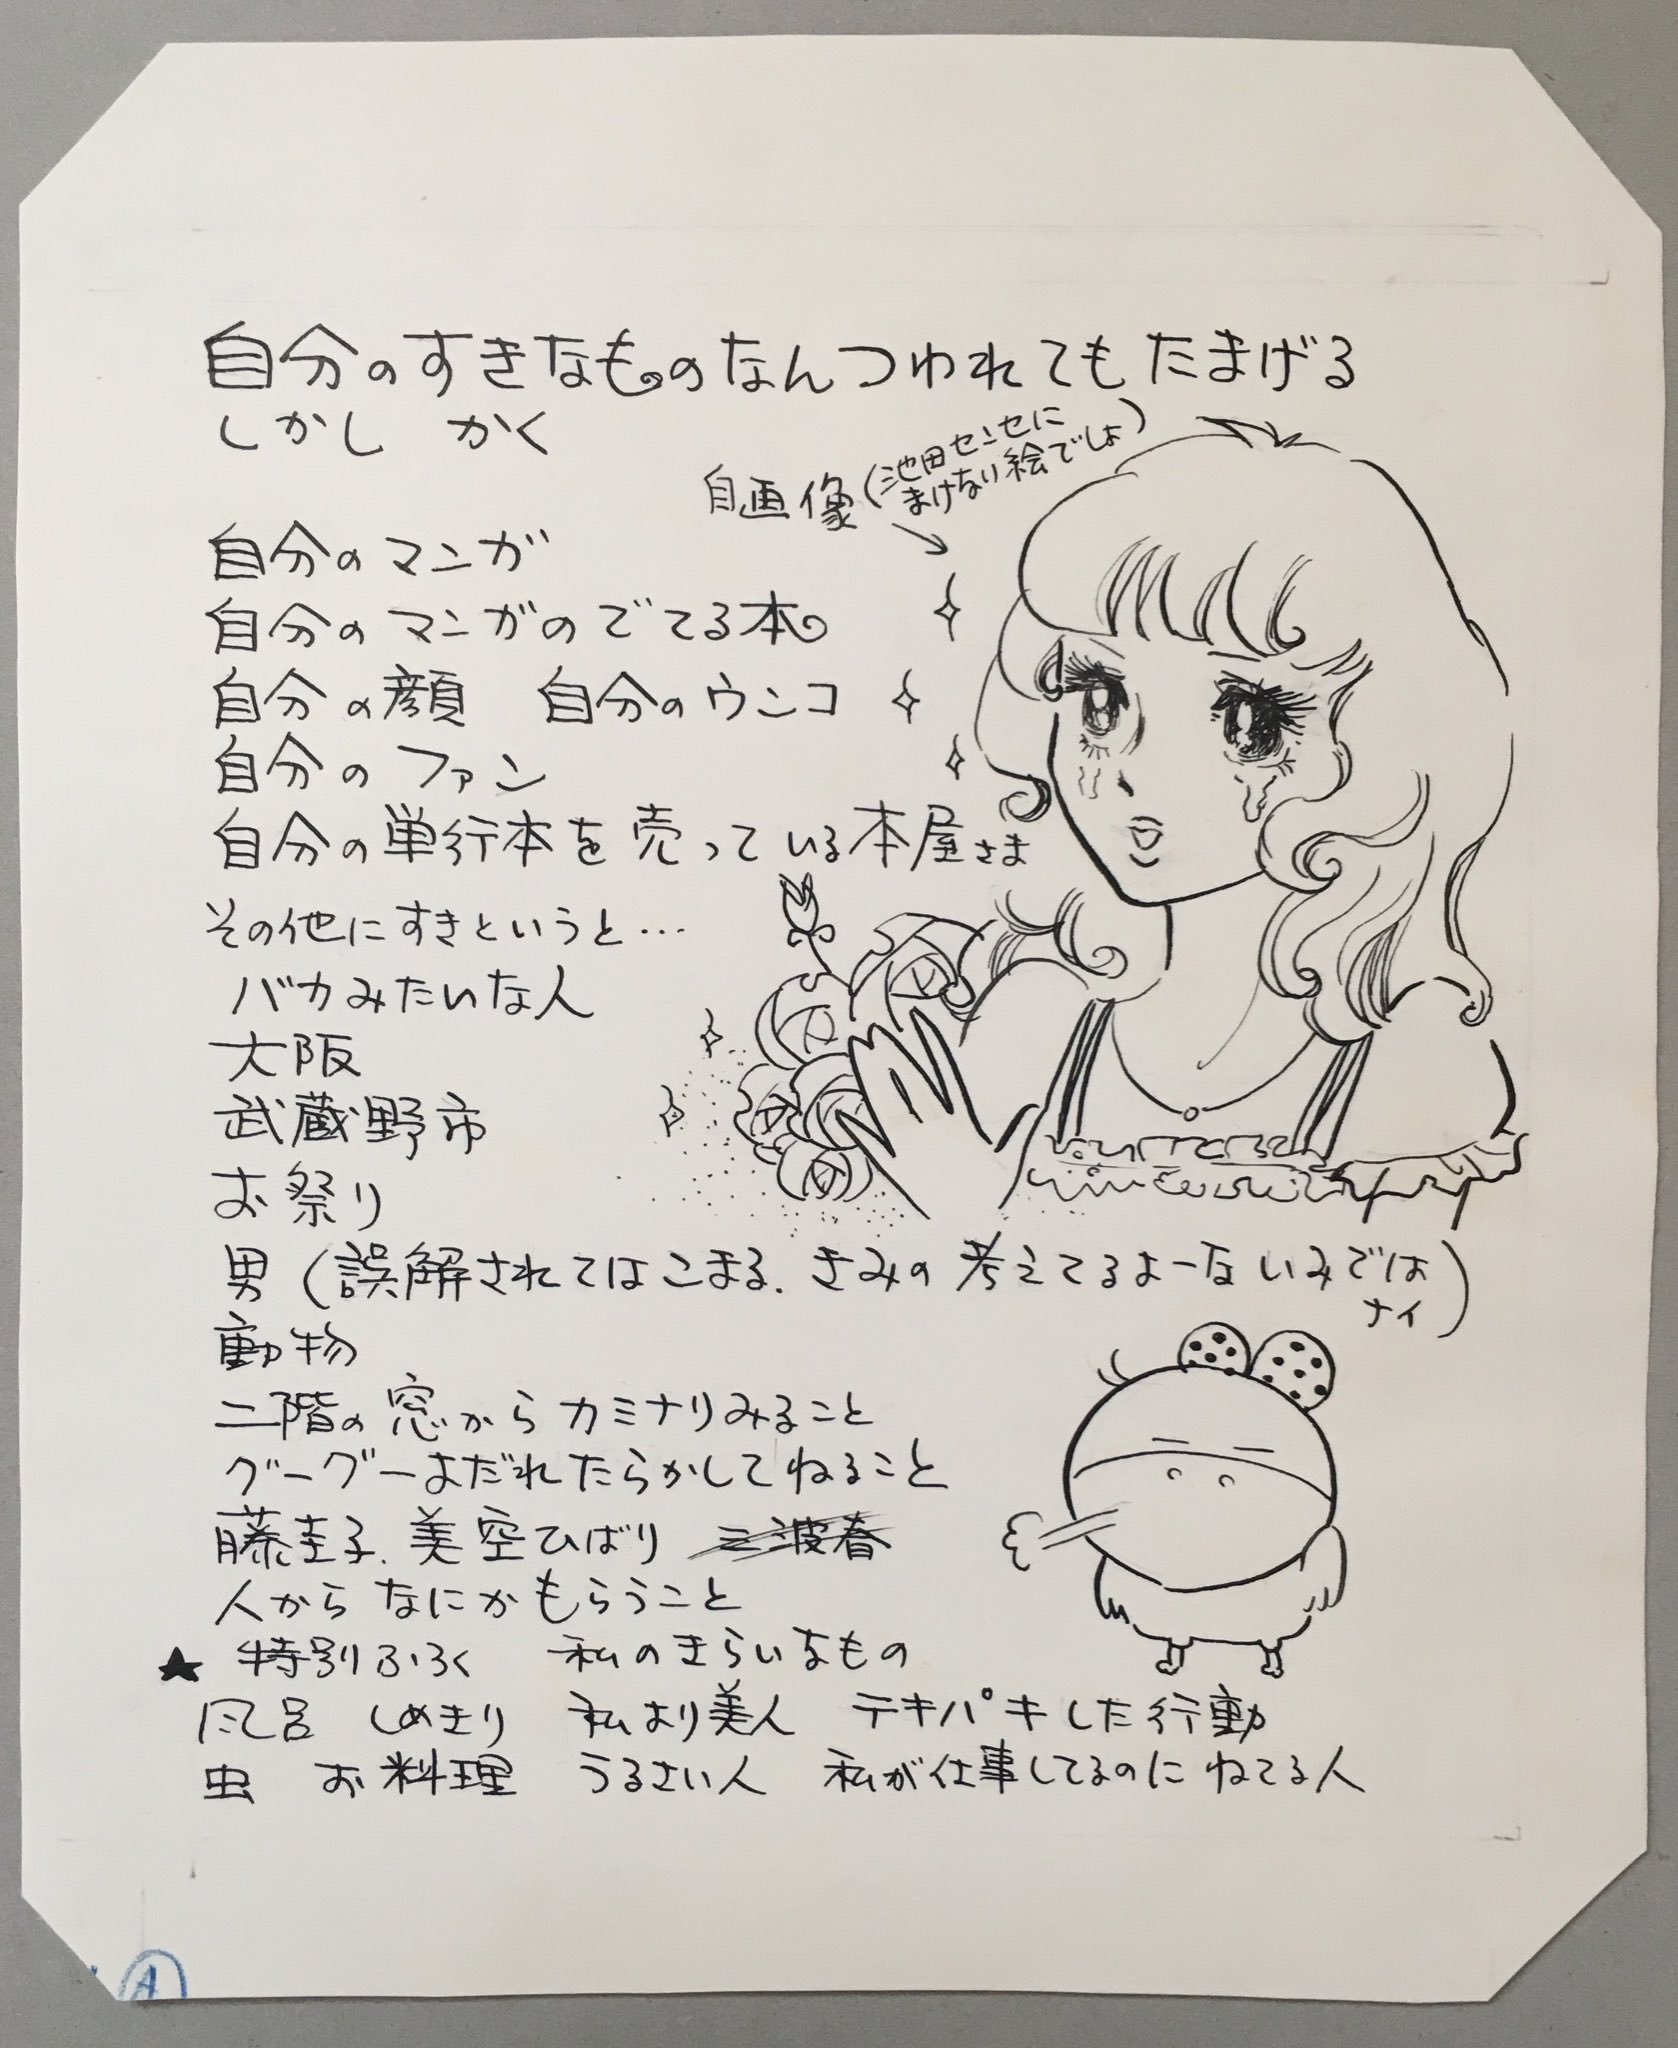 自分のすきなものなんつわれてもたまげる
しかし　かく
自画像(池田センセに
まけない絵でしょ)
自分のマンガ
自分のマンガのでてる本
自分の顔　自分のウンコ
自分のファン
自分の単行本を売っている本屋さま
その他にすきというと…
バカみたいな人
大阪
武蔵野市
お祭り
男(誤解されてはこまる.きみの考えてるよーないみでは
ナイ)
動物
二階の窓からカミナリみること
グーグーよだれたらかしてねること
藤圭子.美空ひばり　三波春
人からなにかもらうこと
★　特別ふろく　私のきらいなもの
風呂　しめきり　私より美人　テキパキした行動
虫　お料理　うるさい人　私が仕事してるのにねてる人
A